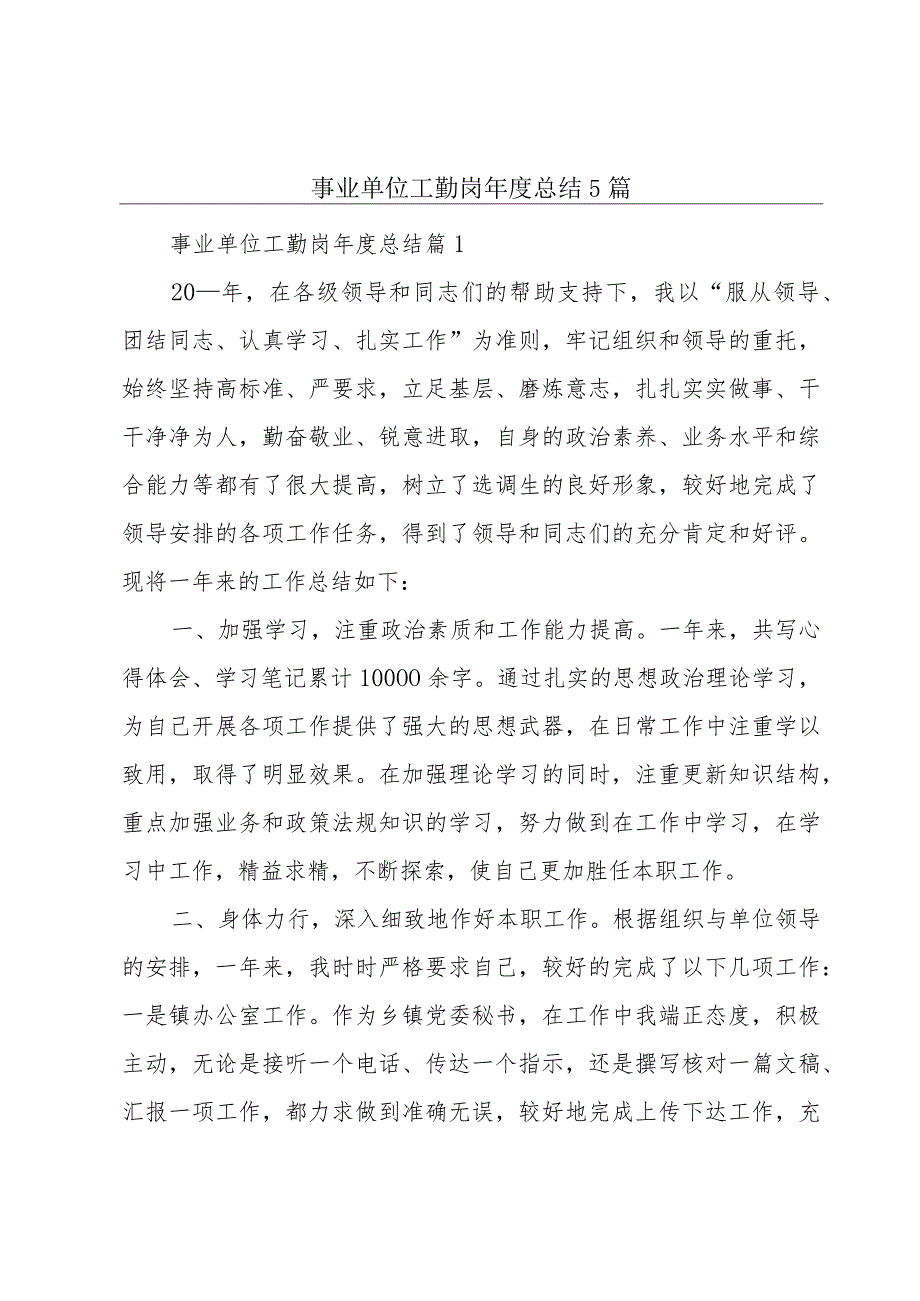 事业单位工勤岗年度总结5篇
事业单位工勤岗年度总结篇1
20—年，在各级领导和同志们的帮助支持下，我以“服从领导、
团结同志、认真学习、扎实工作”为准则，牢记组织和领导的重托，
始终坚持高标准、严要求，立足基层、磨炼意志，扎扎实实做事、干
干净净为人，勤奋敬业、锐意进取，自身的政治素养、业务水平和综
合能力等都有了很大提高，树立了选调生的良好形象，较好地完成了
领导安排的各项工作任务，得到了领导和同志们的充分肯定和好评。
现将一年来的工作总结如下：
一、加强学习，注重政治素质和工作能力提高。一年来，共写心
得体会、学习笔记累计10000余字。通过扎实的思想政治理论学习，
为自己开展各项工作提供了强大的思想武器，在日常工作中注重学以
致用，取得了明显效果。在加强理论学习的同时，注重更新知识结构，
重点加强业务和政策法规知识的学习，努力做到在工作中学习，在学
习中工作，精益求精，不断探索，使自己更加胜任本职工作。
二、身体力行，深入细致地作好本职工作。根据组织与单位领导
的安排，一年来，我时时严格要求自己，较好的完成了以下几项工作：
一是镇办公室工作。作为乡镇党委秘书，在工作中我端正态度，积极
主动，无论是接听一个电话、传达一个指示，还是撰写核对一篇文稿、
汇报一项工作，都力求做到准确无误，较好地完成上传下达工作，充